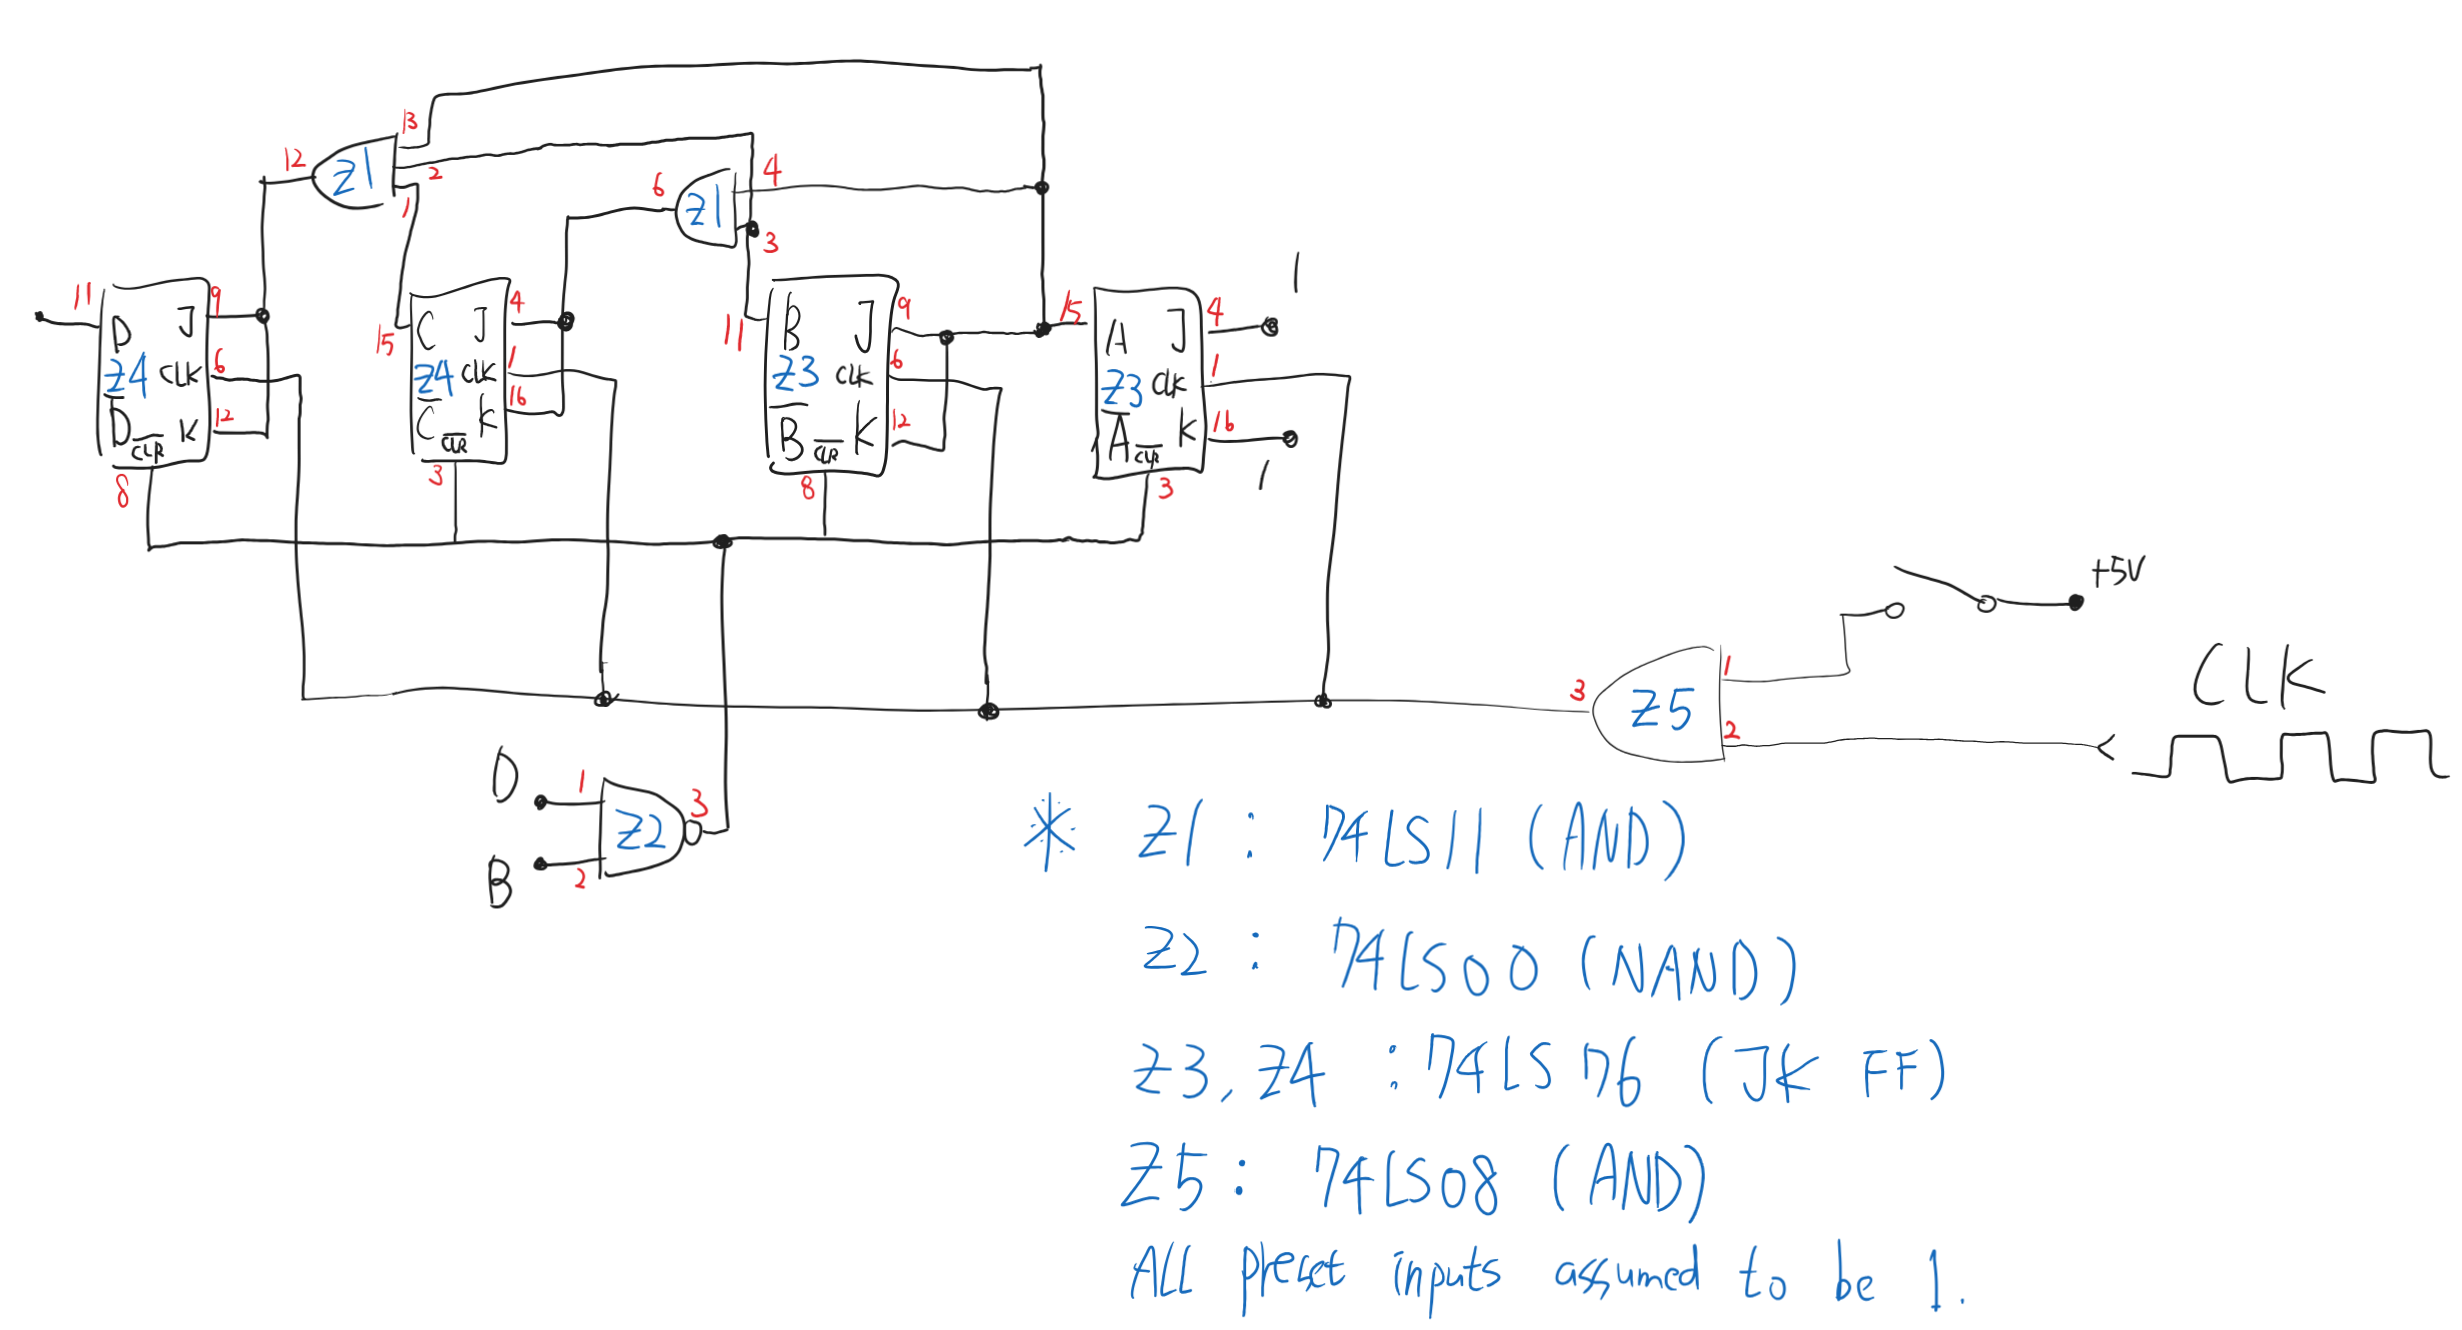 13
12 Z1 2
1
4
6 Z1
3
1
11 D J 9
Z4 CLK 6
D K 12
CLR
8
15 C J 4
Z4 CLK 1
C K 16
CLR
3
11 B J 9
Z3 CLK 6
B K 12
CLR
8
15 A J 4
Z3 CLK 1
A K 16
CLR
3
1
+5V
CLK
3 Z5 1
2
D 1
Z2 3
B 2
* Z1 : 74LS11 (AND)
Z2 : 74LS00 (NAND)
Z3, Z4 : 74LS76 (JK FF)
Z5 : 74LS08 (AND)
ALL preset inputs assumed to be 1.